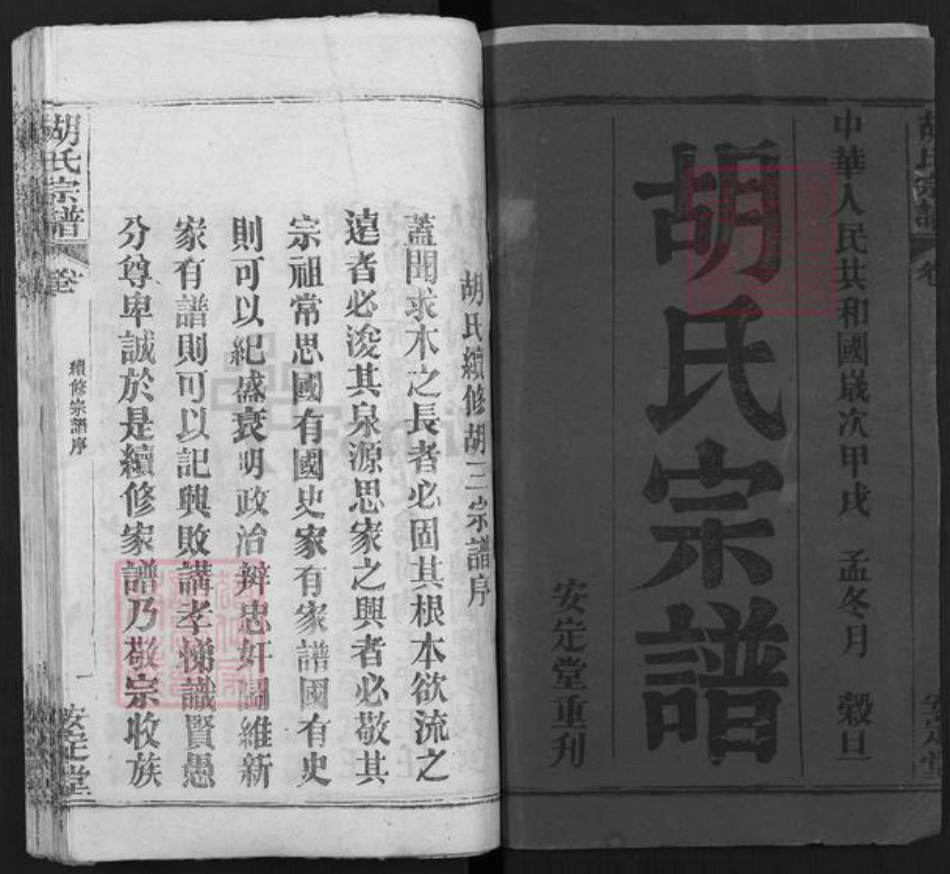 中華人民共和國歲次甲戌 孟冬月 穀旦
胡氏宗譜
安定堂重刋
胡氏續修胡三宗譜序
蓋聞求木之長者必固其根本欲流之
遠者必浚其泉源思家之興者必敬其
宗祖常思國有國史家有家譜國有史
則可以紀盛衰明政治辨忠奸圖維新
家有譜則可以記興敗講孝悌識賢愚
分尊卑誠於是續修家譜乃敬宗收族
胡氏宗譜 卷 續修宗譜序 一 安定堂